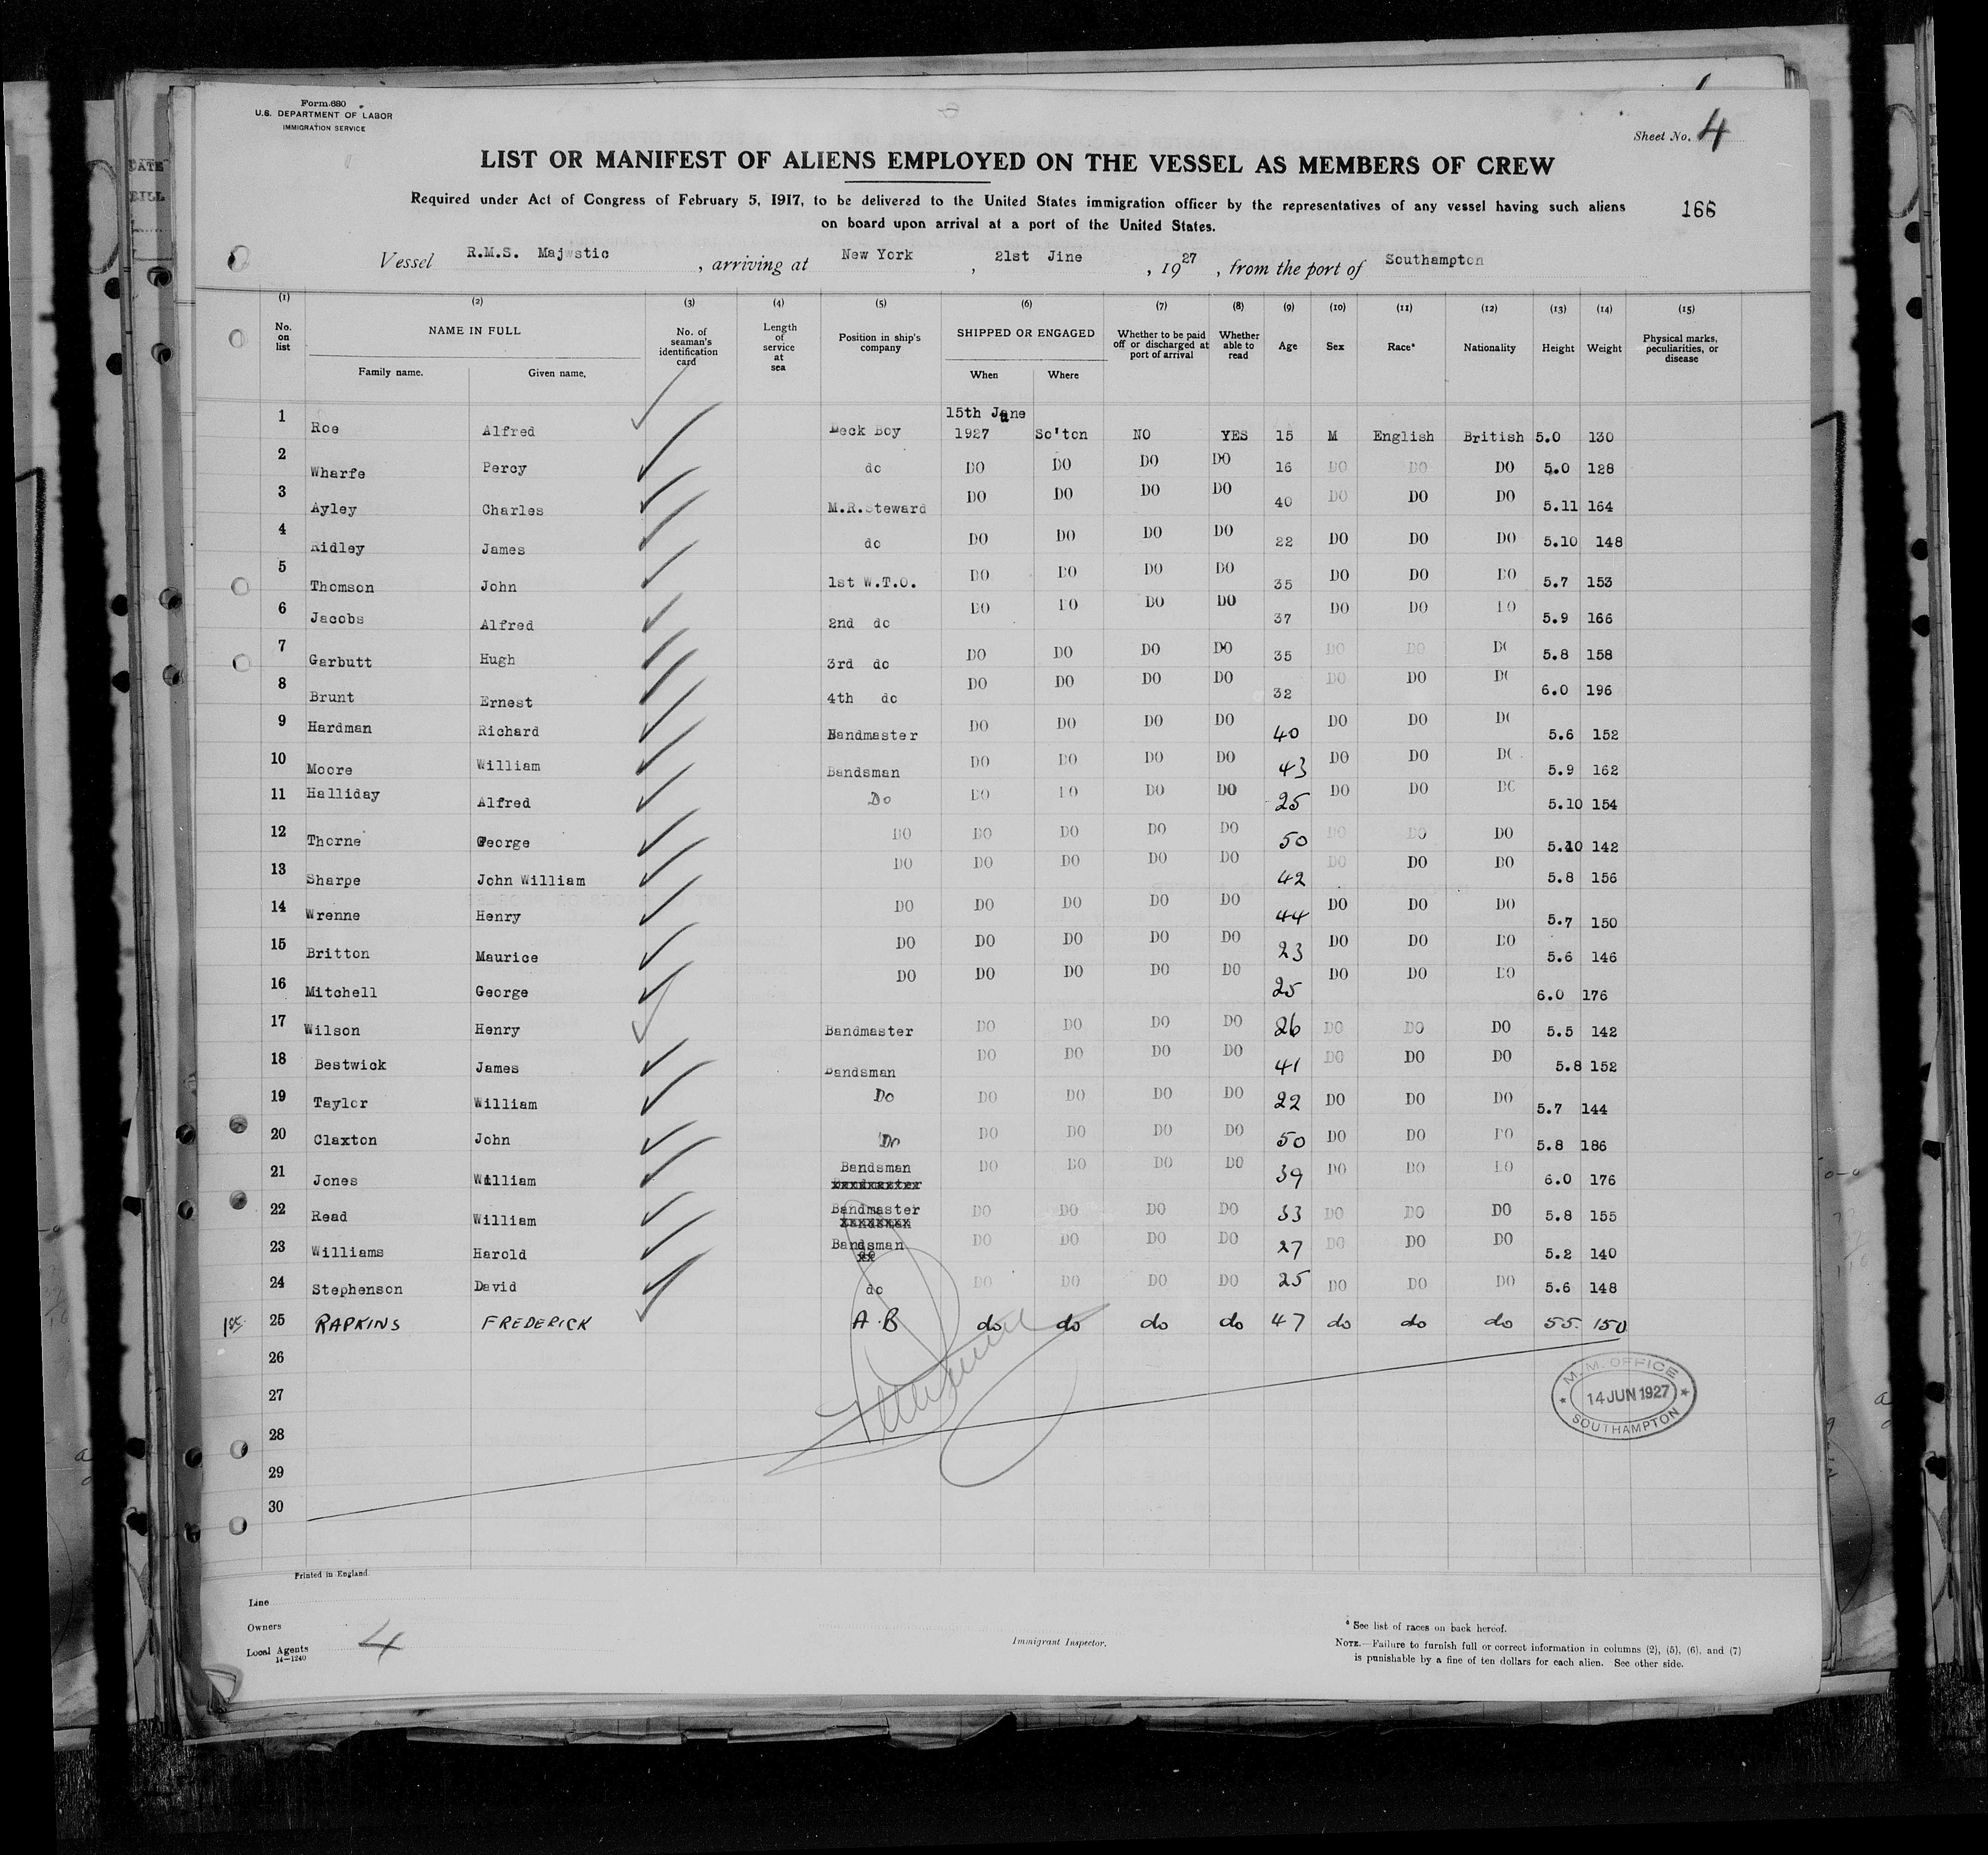 Form 680
U.S. DEPARTMENT OF LABOR
IMMIGRATION SERVICE
Sheet No. 4
LIST OR MANIFEST OF ALIENS EMPLOYED ON THE VESSEL AS MEMBERS OF CREW
Required under Act of Congress of February 5, 1917, to be delivered to the United States immigration officer by the representatives of any vessel having such aliens
on board upon arrival at a port of the United States.
166
Vessel R.M.S. Majwstic , arriving at New York , 21st Jine , 1927 , from the port of Southampton
(1) (2) (3) (4) (5) (6) (7) (8) (9) (10) (11) (12) (13) (14) (15)
No. on list NAME IN FULL Family name. Given name. No. of seaman's identification card Length of service at sea Position in ship's company SHIPPED OR ENGAGED When Where Whether to be paid off or discharged at port of arrival Whether able to read Age Sex Race* Nationality Height Weight Physical marks, peculiarities, or disease
1 Roe Alfred Deck Boy 15th June 1927 So'ton NO YES 15 M English British 5.0 130
2 Wharfe Percy do DO DO DO DO 16 DO DO DO 5.0 128
3 Ayley Charles M.R.Steward DO DO DO DO 40 DO DO DO 5.11 164
4 Ridley James do DO DO DO DO 22 DO DO DO 5.10 148
5 Thomson John 1st W.T.O. DO DO DO DO 35 DO DO DO 5.7 153
6 Jacobs Alfred 2nd do DO DO DO DO 37 DO DO DO 5.9 166
7 Garbutt Hugh 3rd do DO DO DO DO 35 DO DO DO 5.8 158
8 Brunt Ernest 4th do DO DO DO DO 32 DO DO DO 6.0 196
9 Hardman Richard Bandmaster DO DO DO DO 40 DO DO DO 5.6 152
10 Moore William Bandsman DO DO DO DO 43 DO DO DO 5.9 162
11 Halliday Alfred Do DO DO DO DO 25 DO DO DO 5.10 154
12 Thorne George DO DO DO DO DO 50 DO DO DO 5.10 142
13 Sharpe John William DO DO DO DO DO 42 DO DO DO 5.8 156
14 Wrenne Henry DO DO DO DO DO 44 DO DO DO 5.7 150
15 Britton Maurice DO DO DO DO DO 23 DO DO DO 5.6 146
16 Mitchell George DO DO DO DO DO 25 DO DO DO 6.0 176
17 Wilson Henry Bandmaster DO DO DO DO 26 DO DO DO 5.5 142
18 Bestwick James Bandsman DO DO DO DO 41 DO DO DO 5.8 152
19 Taylor William Do DO DO DO DO 22 DO DO DO 5.7 144
20 Claxton John Do DO DO DO DO 50 DO DO DO 5.8 186
21 Jones William Bandsman DO DO DO DO 39 DO DO DO 6.0 176
22 Read William Bandmaster DO DO DO DO 33 DO DO DO 5.8 155
23 Williams Harold Bandsman DO DO DO DO 27 DO DO DO 5.2 140
24 Stephenson David do DO DO DO DO 25 DO DO DO 5.6 148
25 RAPKINS FREDERICK A.B do do do do 47 do do do 55. 150
26
27
28
29
30
M.M. OFFICE
14 JUN 1927
SOUTHAMPTON
Printed in England.
Line
Owners
Local Agents 4
14—1240
Immigrant Inspector.
* See list of races on back hereof.
NOTE.—Failure to furnish full or correct information in columns (2), (5), (6), and (7)
is punishable by a fine of ten dollars for each alien. See other side.